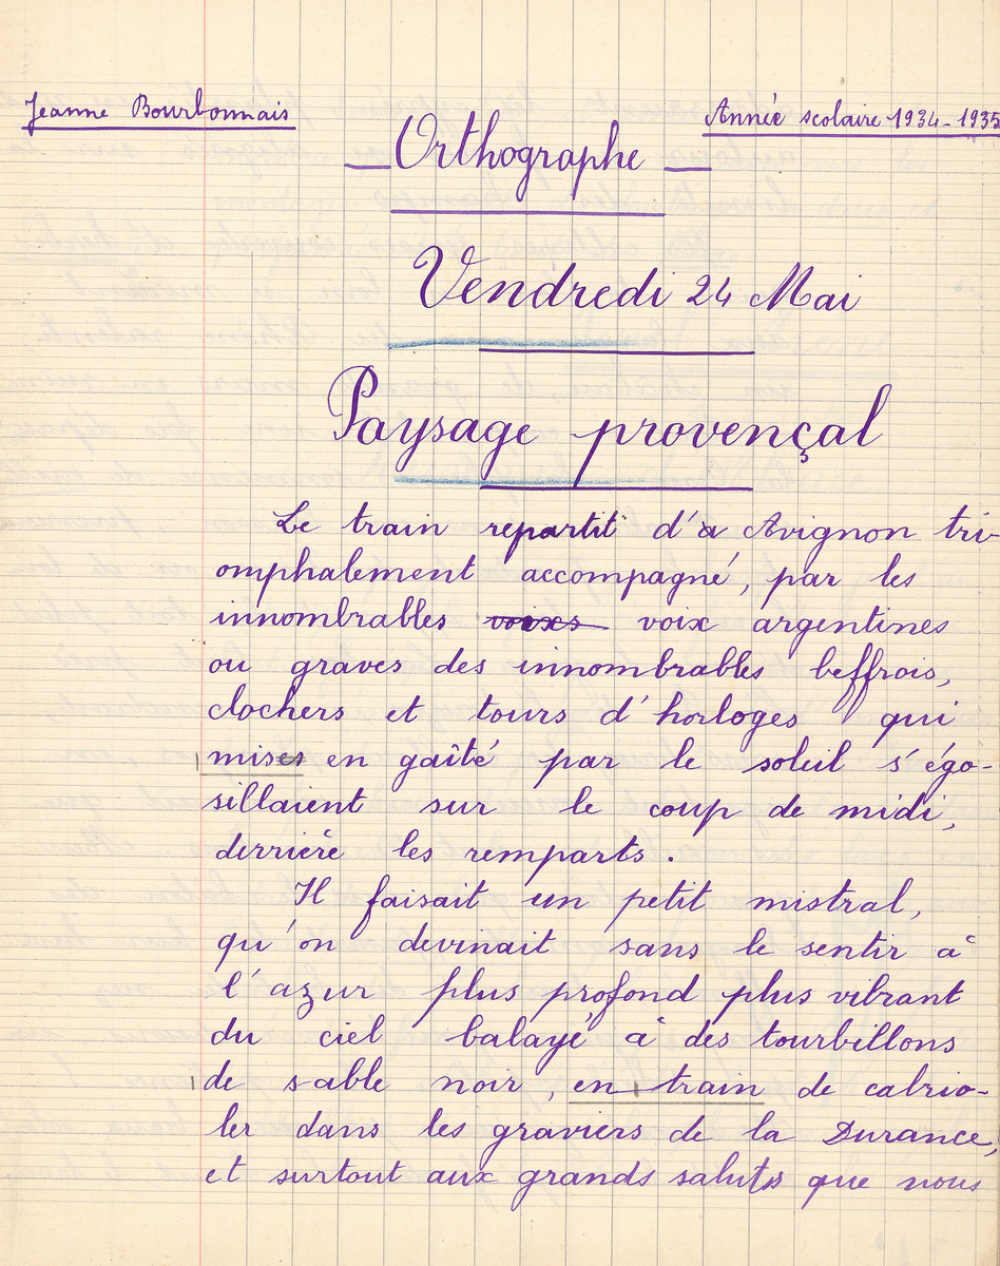 Jeanne Bourbonnais
Année scolaire 1934-1935
Orthographe
Vendredi 24 Mai
Paysage provençal
Le train repartit d'a Avignon tri-
omphalement accompagné, par les
innombrables voixs voix argentines
ou graves des innombrables beffrois,
clochers et tours d'horloges qui
mises en gaîté par le soleil s'égo-
sillaient sur le coup de midi,
derrière les remparts.
Il faisait un petit mistral,
qu'on devinait sans le sentir à
l'azur plus profond plus vibrant
du ciel balayé à des tourbillons
de sable noir, en train de cabrio-
ler dans les graviers de la Durance,
et surtout aux grands saluts que nous